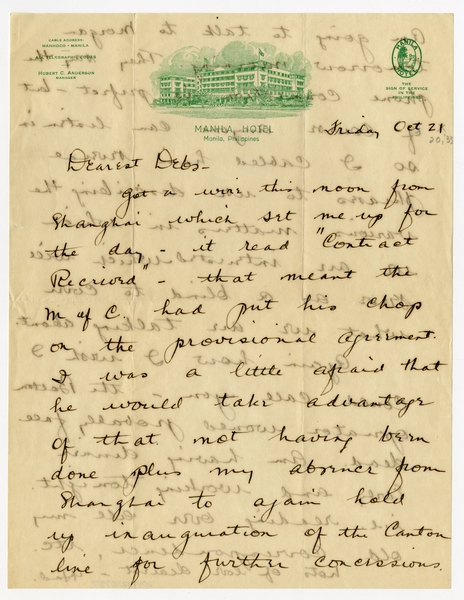 CABLE ADDRESS,
MANHOCO - MANILA
ALL TELEGRAPHIC CODES
HUBERT C. ANDERSON
MANAGER
MANILA HOTEL
THE
SIGN OF SERVICE
IN THE
PHILIPPINES
MANILA HOTEL
Manila, Philippines
Friday Oct 21
Dearest Debs-
Got a wire this noon from
Shanghai which set me up for
the day - it read "Contract
Received" - that meant the
M of C. had put his chop
on the provisional agreement.
I was a little afraid that
he would take advantage
of that not having been
done plus my absence from
Shanghai to again hold
up inauguration of the Canton
line for further concessions.